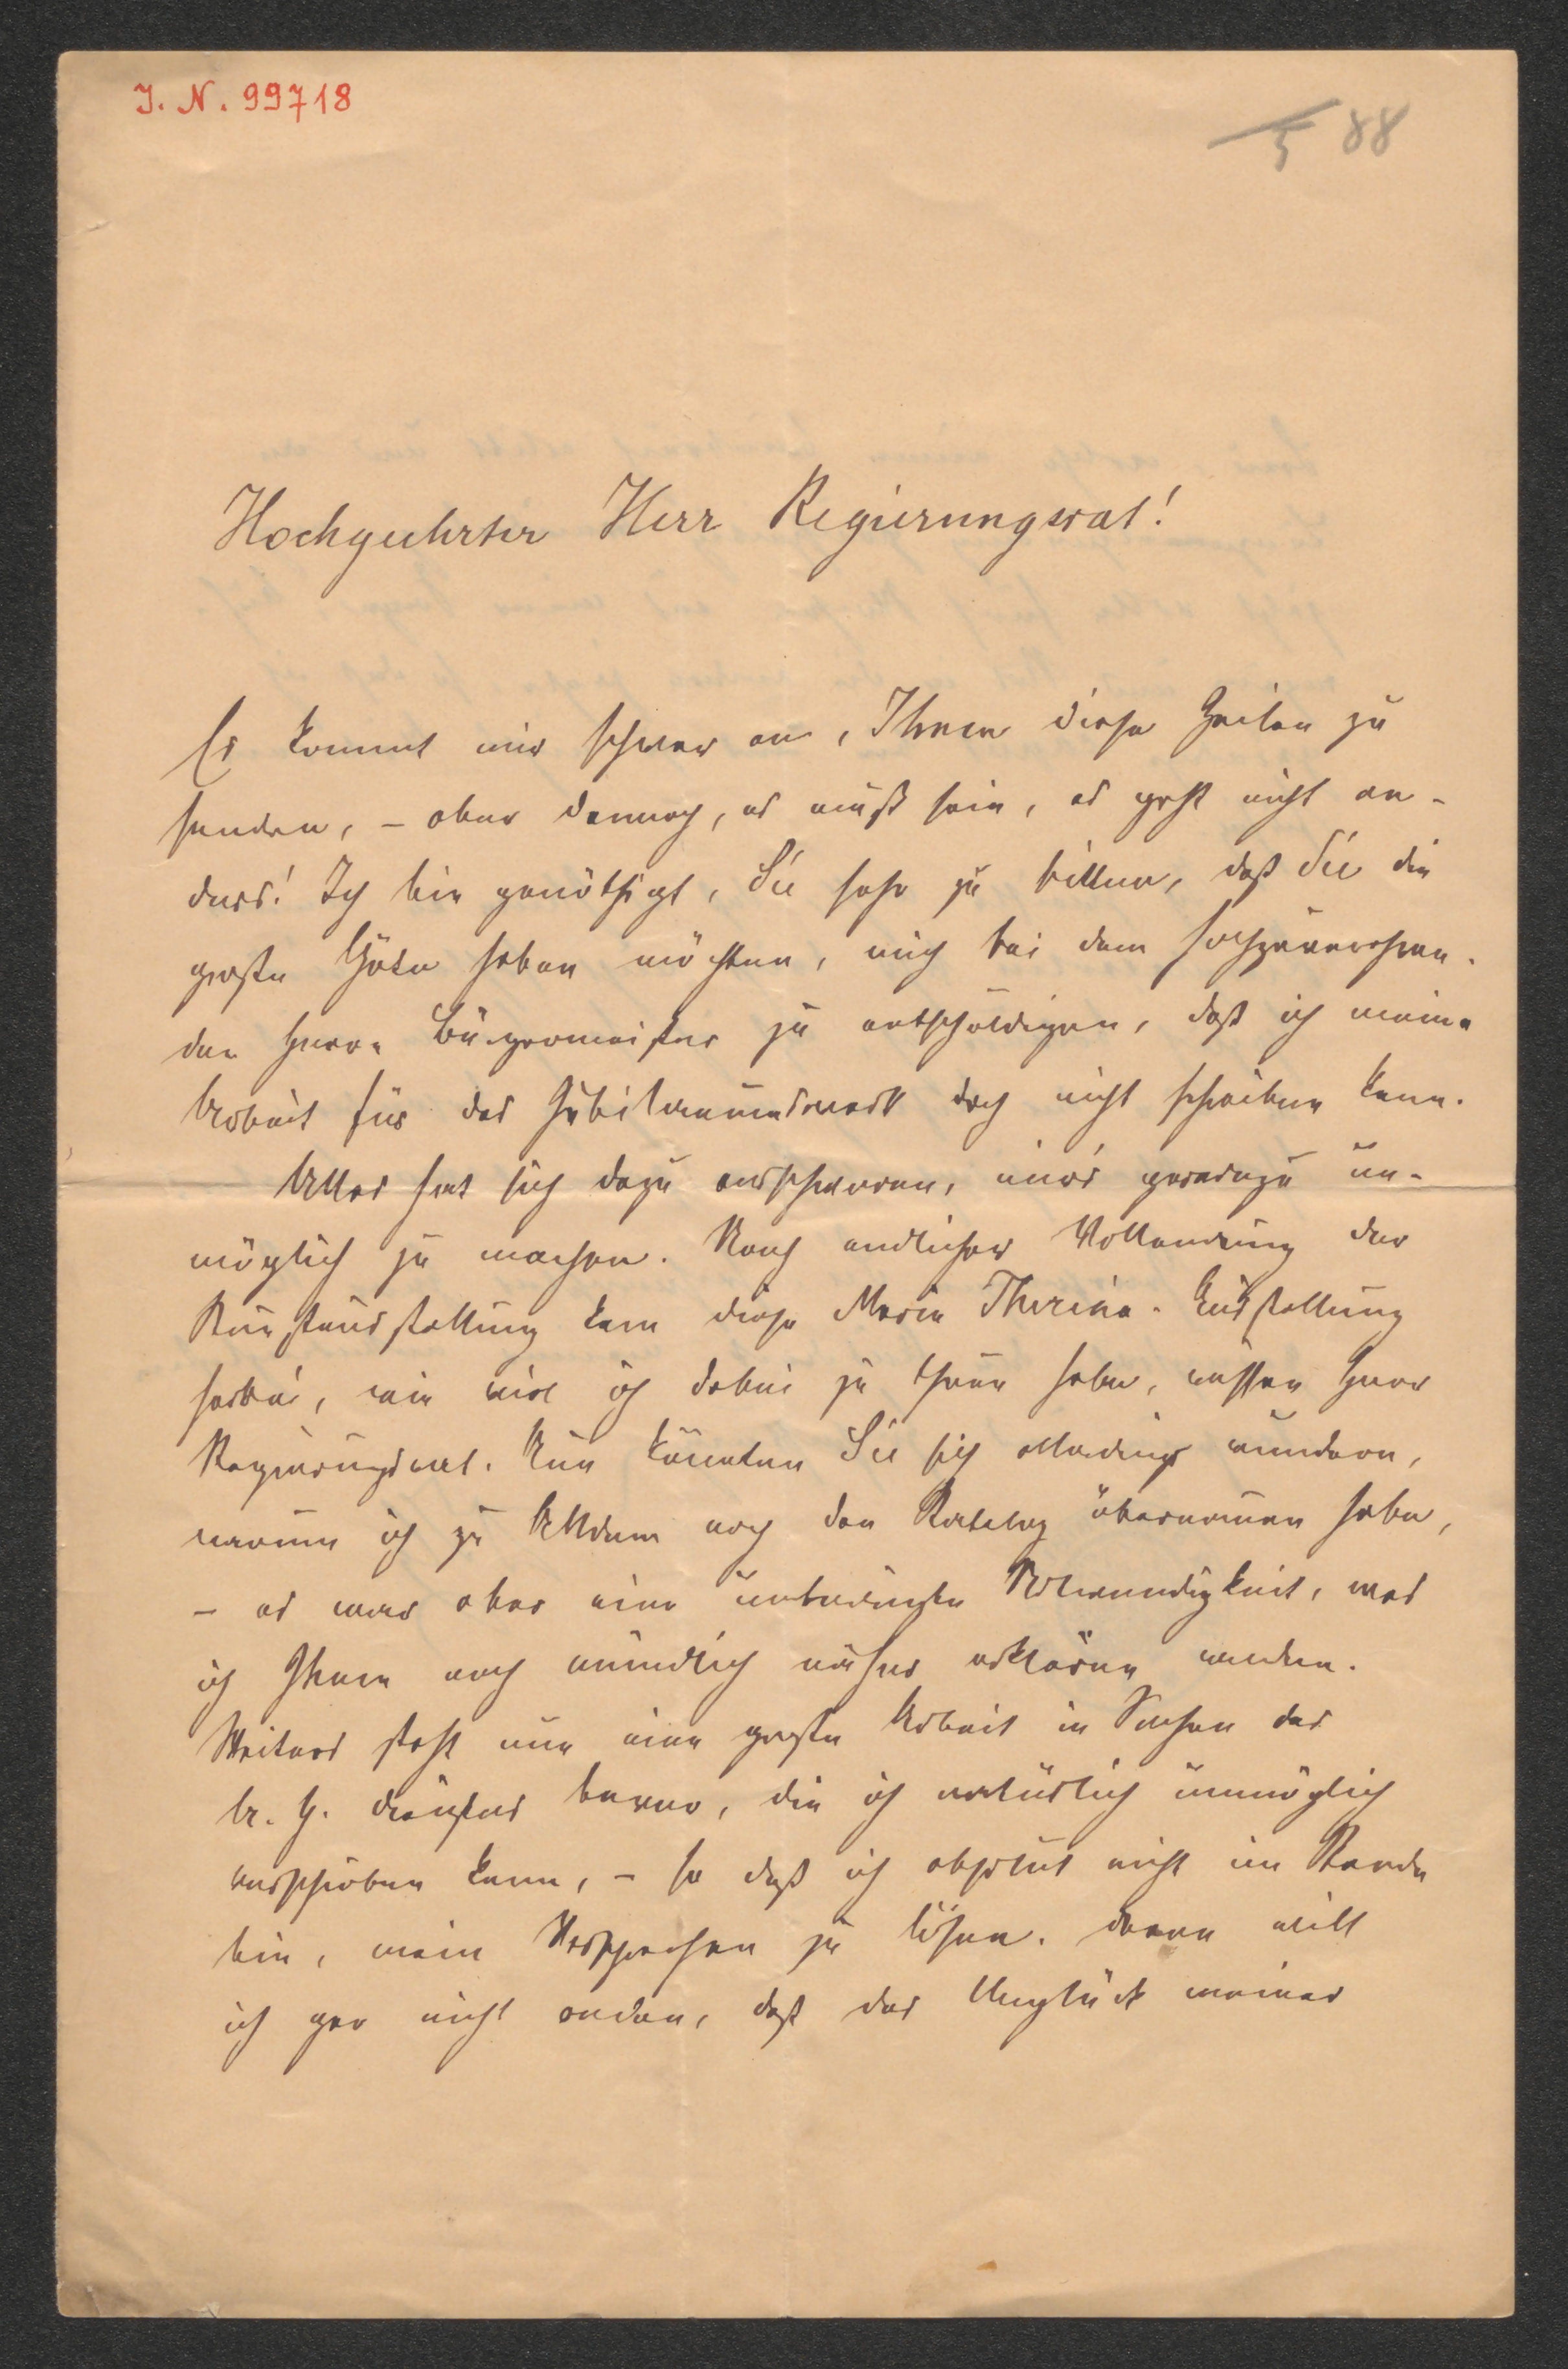 J. N. 99718
5 88
Hochgeehrter Herr Regierungsrat!
Es kommt mir schwer an, Ihnen diese Zeilen zu
senden, – aber dennoch, es muß sein, es geht nicht an-
ders! Ich bin genöthigt, Sie sehr zu bitten, daß Sie die
große Güte haben möchten, mich bei dem hochzuverehren-
den Herrn Bürgermeister zu entschuldigen, daß ich meine
Arbeit für das Jubilaeumswerk doch nicht schreiben kann.
Alles hat sich dazu verschworen, mir's geradezu un-
möglich zu machen. Nach endlicher Vollendung der
Kunstausstellung kam diese Maria Theresia-Ausstellung
herbei, wie viel ich dabei zu thun habe, wissen Herr
Regierungsrat. Nun könnten Sie sich allerdings wundern,
warum ich zu Alldem noch den Katalog übernommen habe,
– es war aber eine unbedingte Nothwendigkeit, was
ich Ihnen noch mündlich näher erklären werde.
Weiters steht nun eine große Arbeit in Sachen des
a. h. Dienstes bevor, die ich natürlich unmöglich
verschieben kann, – so daß ich absolut nicht im Stande
bin, mein Versprechen zu lösen. Davon will
ich gar nicht reden, daß das Unglück meines